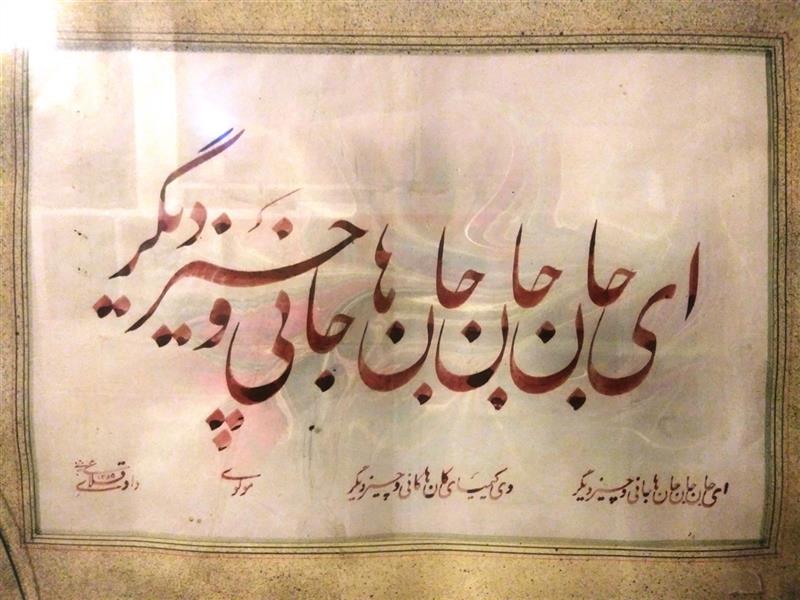 ای جان جان جان ها جانی و چیز دیگر
ای جان جان جان ها جانی و چیز دیگر
وی کیمیای کان ها کانی و چیز دیگر
مولوی
۱۳۸۵